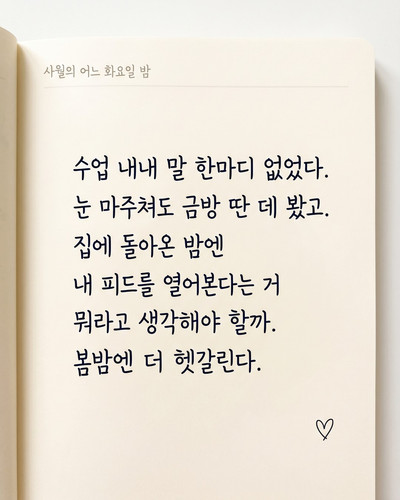 사월의 어느 화요일 밤
수업 내내 말 한마디 없었다.
눈 마주쳐도 금방 딴 데 봤고.
집에 돌아온 밤엔
내 피드를 열어본다는 거
뭐라고 생각해야 할까.
봄밤엔 더 헷갈린다.